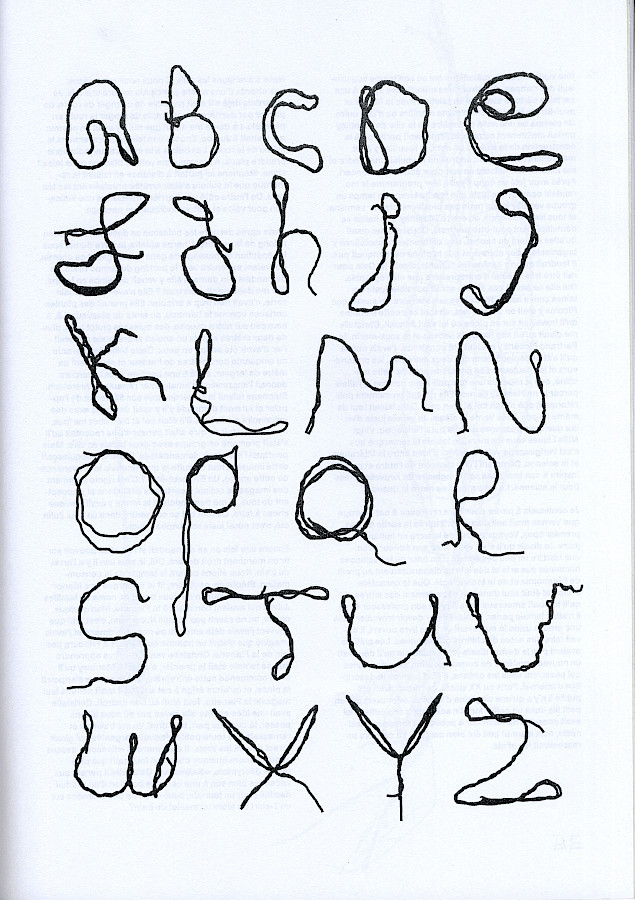 a B C D e
f g h i j
K L M N
O p Q R
S T U V
W X Y Z